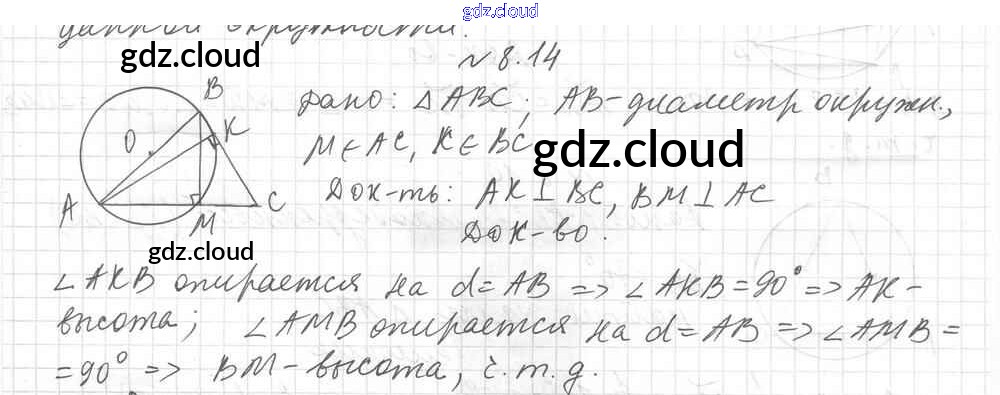 gdz.cloud
данной окружности.
№ 8.14
gdz.cloud
Дано: △ABC; AB-диаметр окружн.,
M∈AC, K∈BC
gdz.cloud
Док-ть: AK⊥BC, BM⊥AC
Док-во.
B
K
O
A
M
C
gdz.cloud
∠AKB опирается на d=AB => ∠AKB=90° => AK-
высота; ∠AMB опирается на d=AB => ∠AMB=
=90° => BM-высота, ч.т.д.